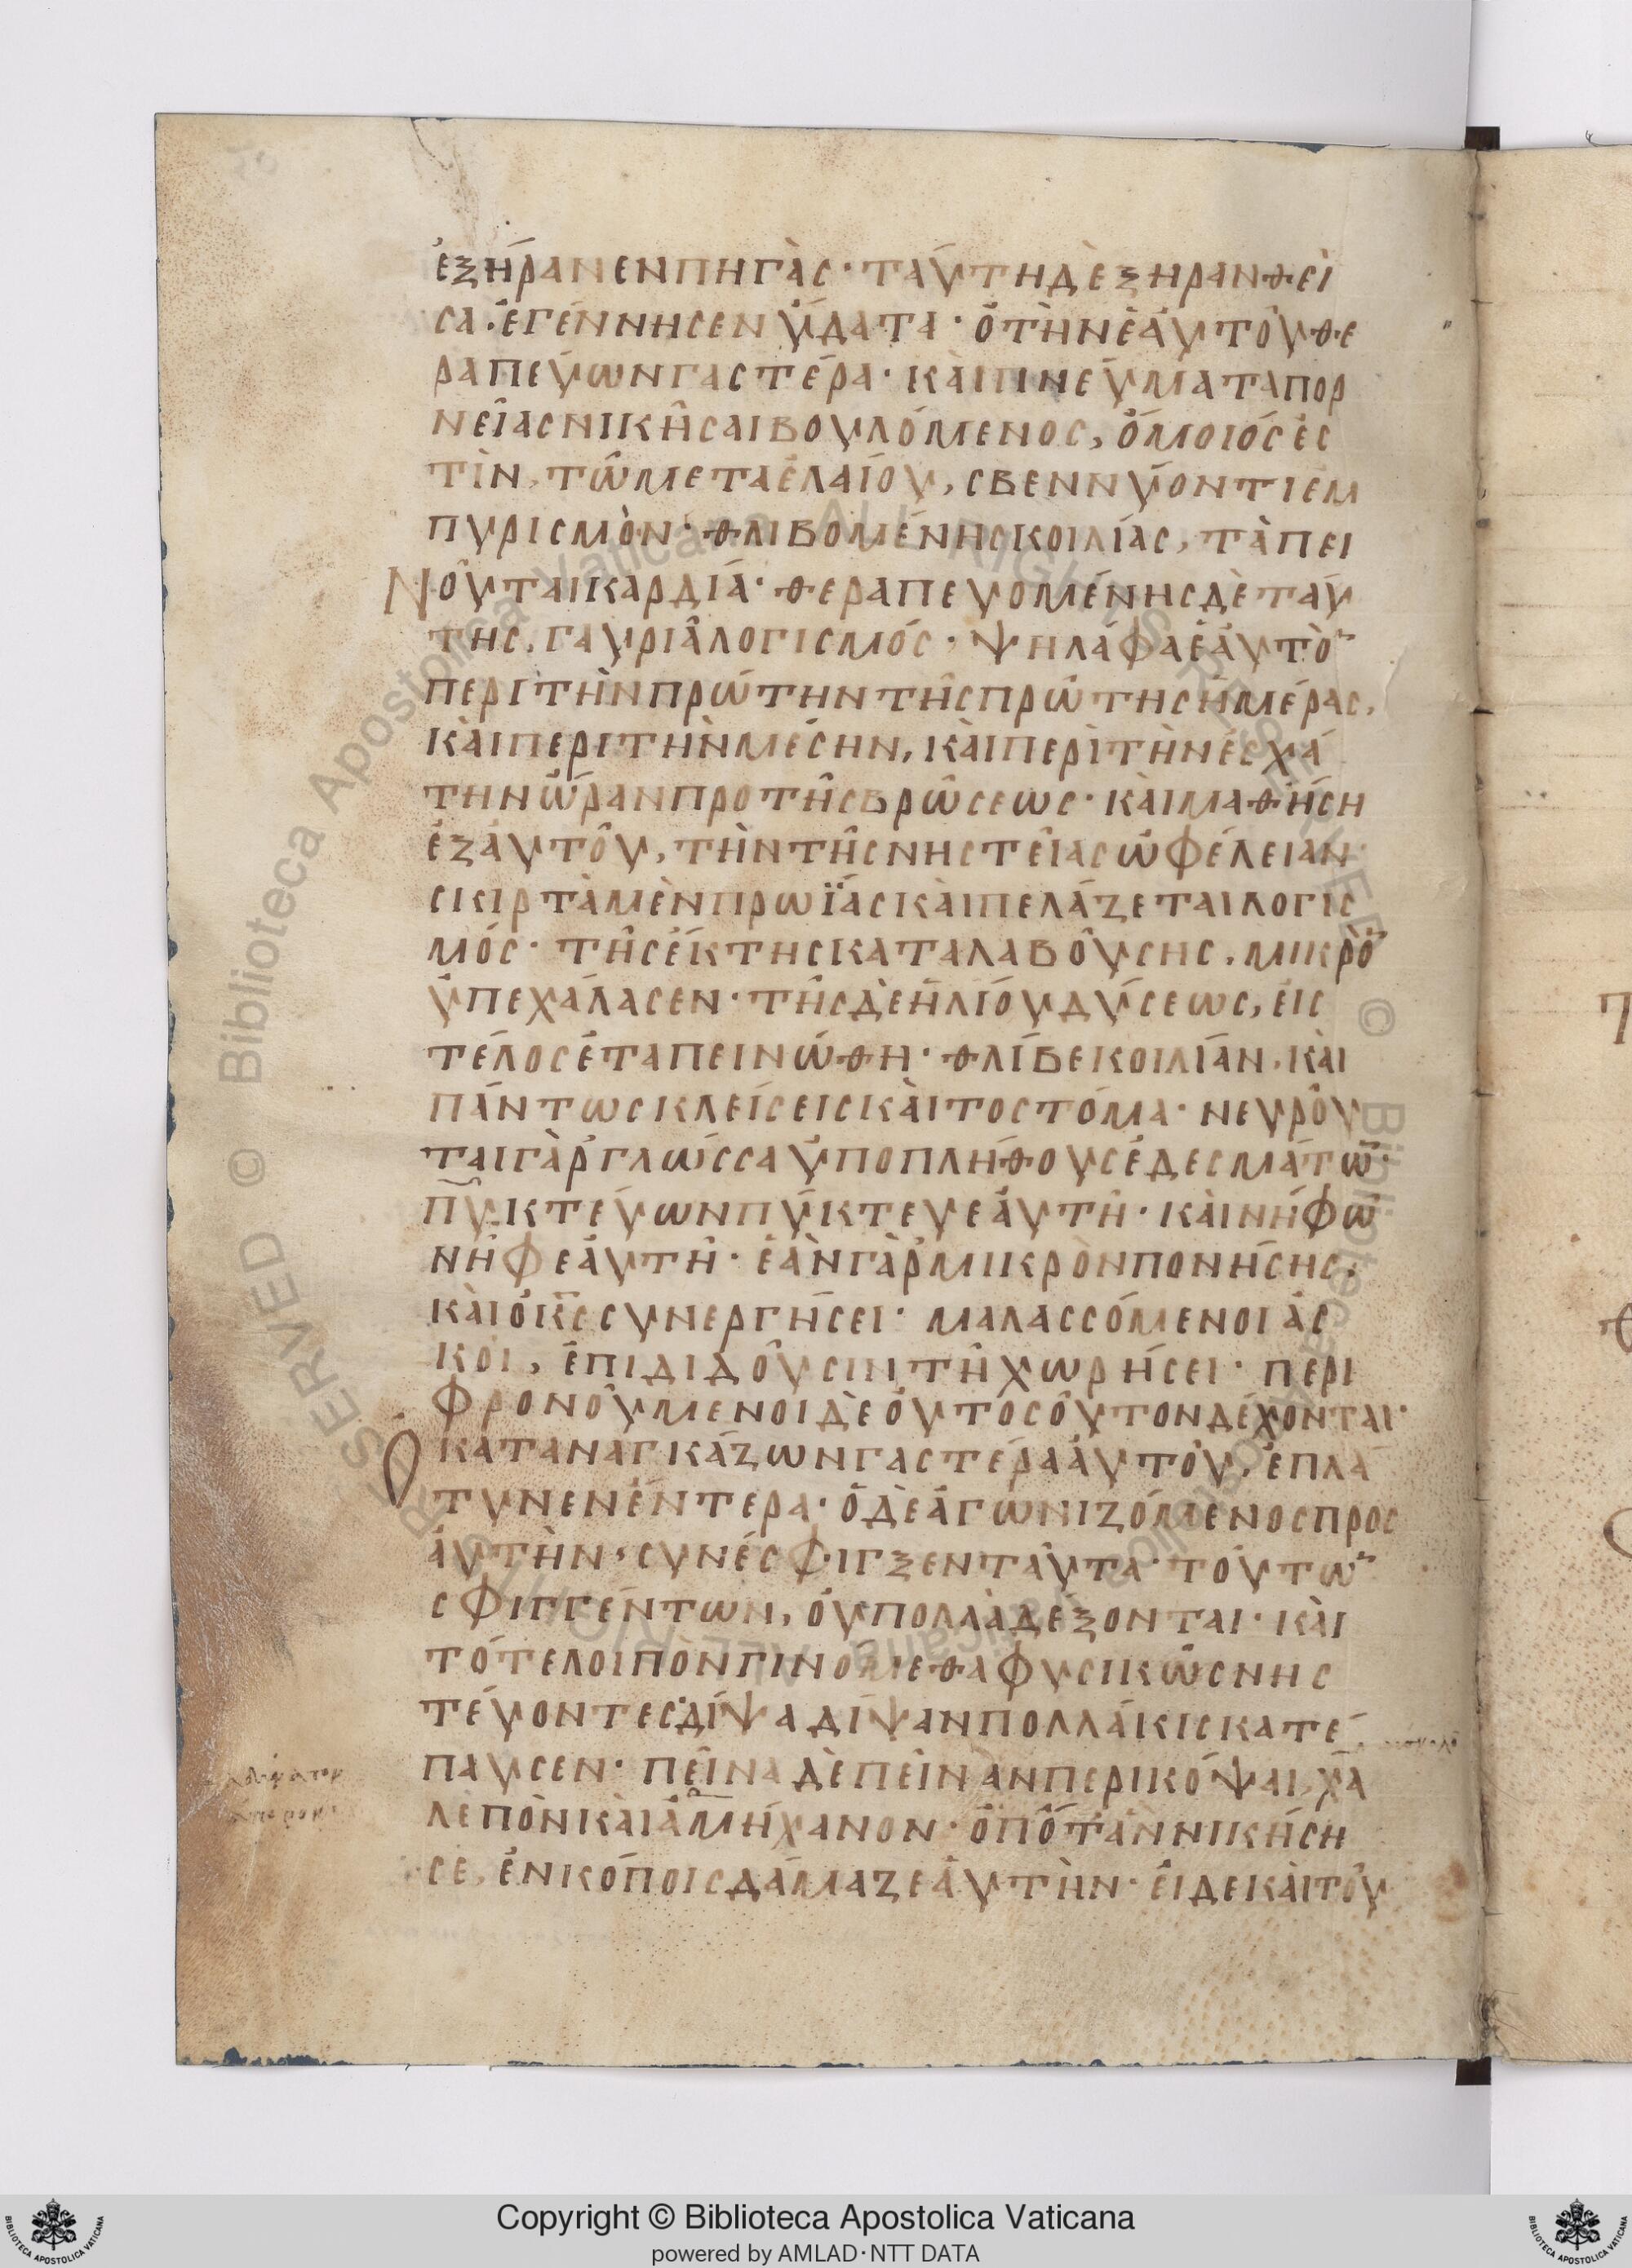 ἐξήρανεν πηγὰς· ταύτη δὲ ξηρανθεῖ
σα· ἐγέννησεν ὕδατα· ὁ τὴν ἑαυτοῦ θε
ραπεύων γαστέρα· καὶ πνεύματα πορ
νείας νικῆσαι βουλόμενος, ὅμοιός ἐς
τὶν, τῶ μετα ἐλαίου, σβεννύοντι ἐμ
πυρισμὸν· θλιβομένης κοιλίας, τὰπει
νοῦται καρδία· θεραπευομένης δὲ ταύ
της, γαυριᾶ λογισμός· ψηλάφα ἑαυτὸ̅
περι τὴν πρώτην τῆς πρώτης ἡμέρας,
καὶ περι τὴν μέσην, καὶ περὶ τὴν ἐσχά
την ὥραν προ τῆς βρώσεως· καὶ μαθήση
ἐξ αὐτοῦ, τὴν τῆς νηστείας ὠφέλειαν·
σκιρτὰ μὲν πρωϊάς καὶ πελάζεται λογισ
μός· τῆς ἕκτης καταλαβούσης, μικρὸ̅
ὑπεχάλασεν· τῆς δὲ ἡλίου δύσεως, εἰς
τέλος ἐταπεινώθη· θλίβε κοιλίαν, καὶ
πάντως κλείσεις καὶ το στόμα· νευροῦ
ται γὰρ γλώσσα ὑπο πλήθους ἐδεσμάτω̅·
πυκτεύων πύκτευε αὐτῆ· καὶ νήφω̅
νῆφε αὐτῆ· ἐὰν γὰρ μικρὸν πονήσης,
καὶ ὁ κ̅ς̅ συνεργήσει· μαλασσόμενοι ἀσ
κοι, ἐπιδιδοῦσιν τῆ χωρήσει· περι
φρονούμενοι δὲ οὐ τοσοῦτον δέχονται·
Ὁ καταναγκάζων γαστέρα αὐτοῦ, ἐπλά
τυνεν ἔντερα· ὁ δὲ ἀγωνιζόμενος προς
αὐτὴν, συνέσφιγξεν ταῦτα· τούτω̅
σφιγγέντων, οὐ πολλὰ δέξονται· καὶ
τότε λοιπὸν γινόμεθα φυσικῶς νης
τέυοντες· δίψα δίψαν πολλάκις κατέ
παυσεν· πεῖνα δὲ πεῖναν περικόψαι, χα
λεπὸν καὶ ἀμήχανον· ὁπόταν νικήση
σε, ἐν κόποις δάμαζε αὐτὴν· εἰ δε καὶ τοῦ
Copyright © Biblioteca Apostolica Vaticana
powered by AMLAD·NTT DATA